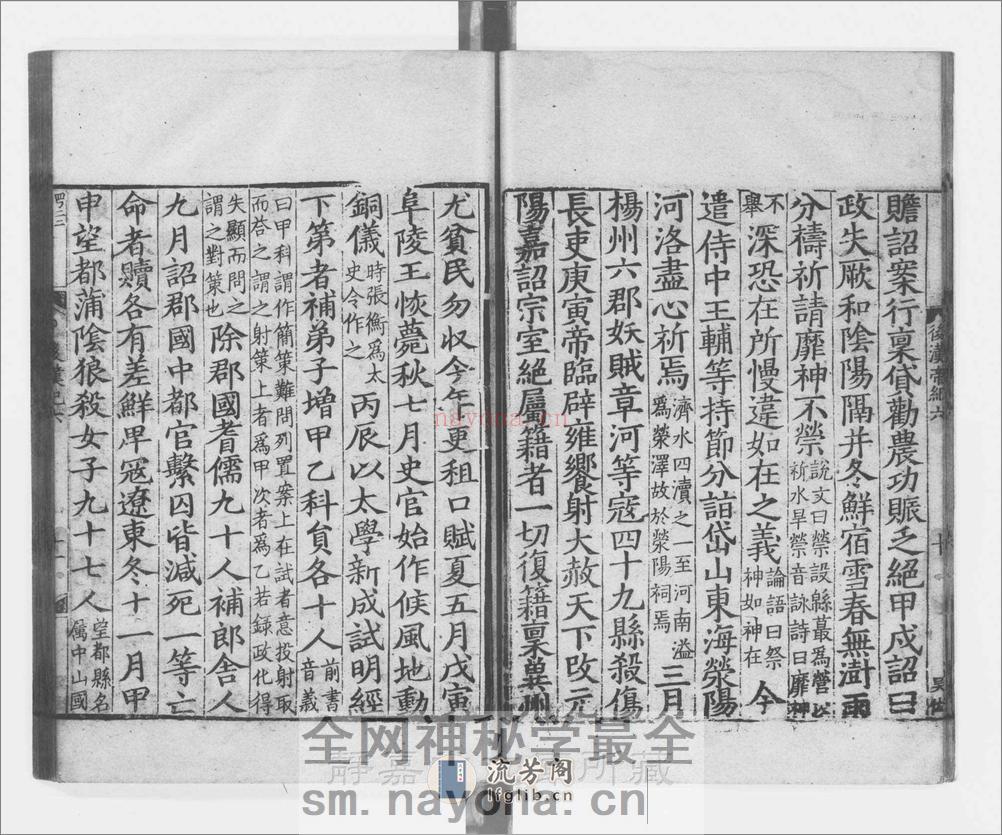 贍詔案行稟貸勸農功賑乏絕甲戌詔曰
政失厥和陰陽隔并冬鮮宿雪春無澍雨
分禱祈請靡神不禜說文曰禜設緜蕞爲營以
祈水旱禜音詠詩曰靡神
不
舉深恐在所慢違如在之義論語曰祭
神如神在今
遣侍中王輔等持節分詣岱山東海滎陽
河洛盡心祈焉濟水四瀆之一至河南溢
爲滎澤故於滎陽祠焉三月
楊州六郡妖賊章河等寇四十九縣殺傷
長吏庚寅帝臨辟雍饗射大赦天下改元
陽嘉詔宗室絕屬籍者一切復籍稟兾州
後漢帝紀六
尤貧民勿收今年更租口賦夏五月戊寅
阜陵王恢薨秋七月史官始作候風地動
銅儀時張衡爲太
史令作之丙辰以太學新成試明經
下第者補弟子增甲乙科員各十人前書
音義
曰甲科謂作簡策難問列置案上在試者意投射取
而荅之謂之射策上者爲甲次者爲乙若録政化得
失顯而問之
謂之對策也除郡國耆儒九十人補郎舍人
九月詔郡國中都官繫囚皆減死一等亡
命者贖各有差鮮卑寇遼東冬十一月甲
申望都蒲陰狼殺女子九十七人望都縣名
屬中山國
nayona.cn
全网神秘学最全
静嘉 所藏
流芳阁
lfglib.cn
sm.nayona.cn